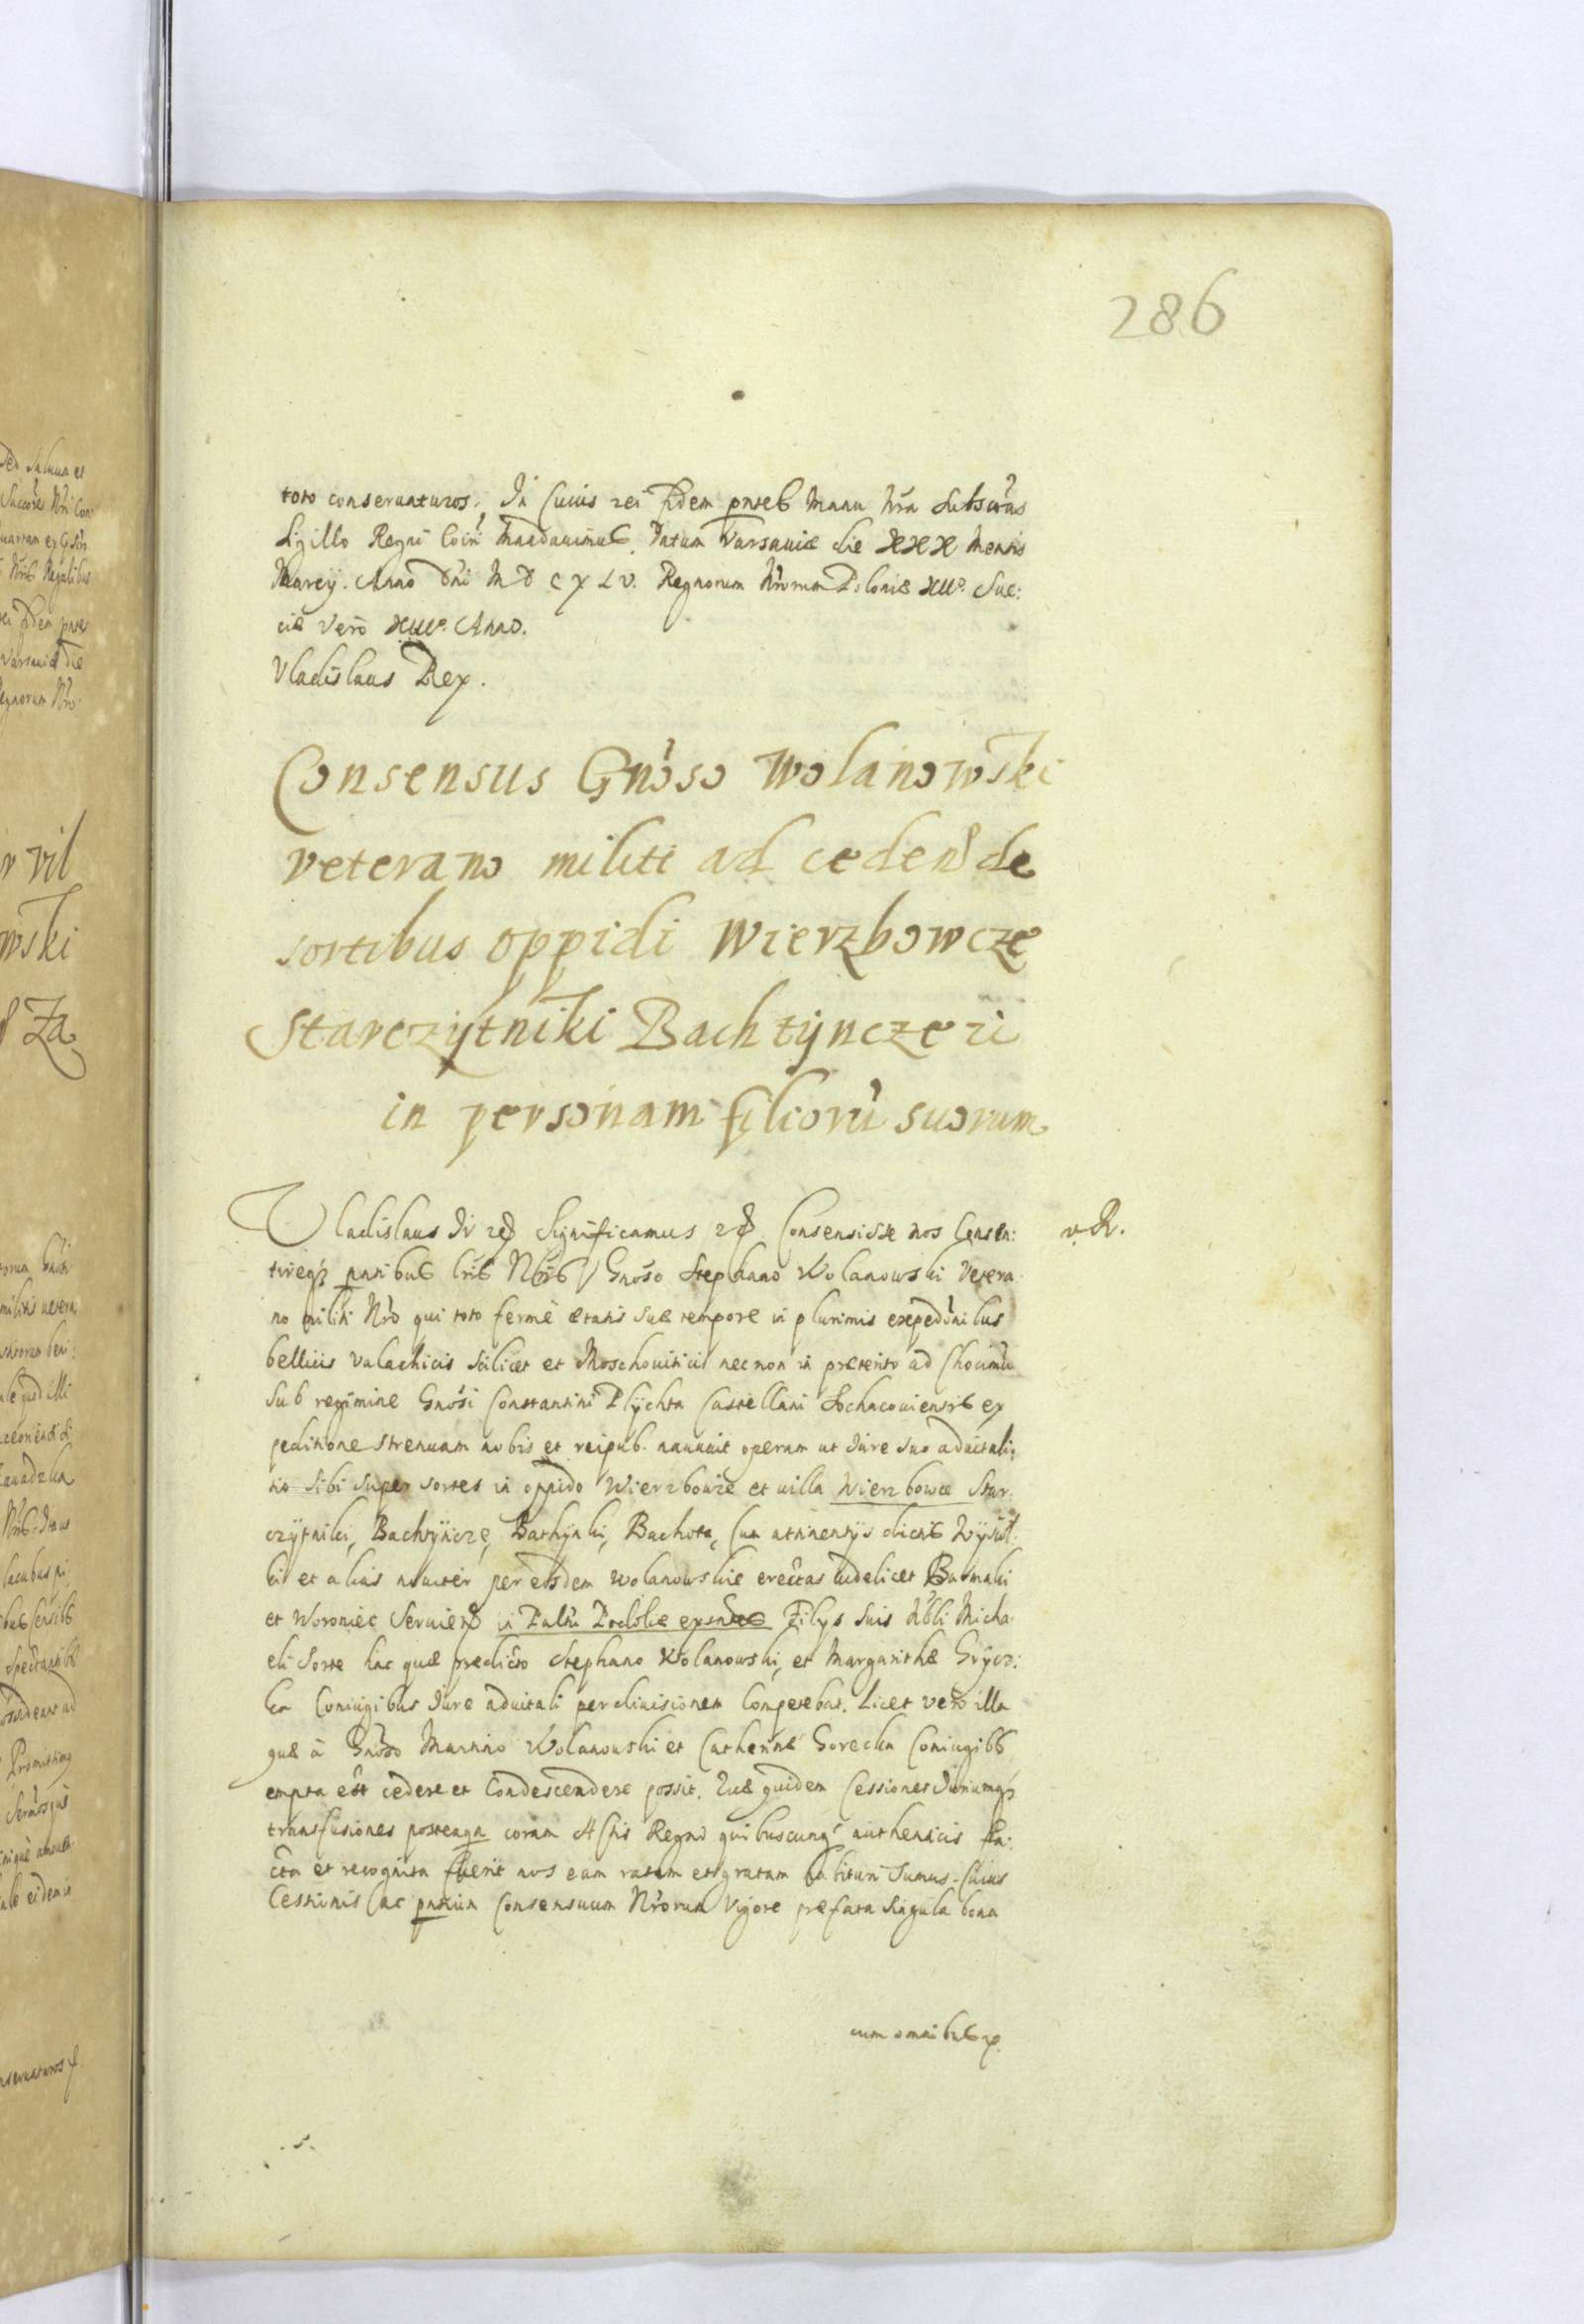 286
toto conseruaturos. In Cuius rei fidem pntes Manu Nra Subscras
Sigillo Regni Coiri Mandauimus. Datum Varsauiæ die XXX Mensis
Marcij. Anno Dni M D C X L V. Regnorum Nrorum Poloniæ XIII. Sue:
ciæ Vero XIIII. Anno.
Vladislaus Rex.
Consensus Gnoso Wolanowski
veterano militi ad cedend de
sortibus oppidi Wierzbowcze
Starczytniki Bachtyncze ri
in personam filioru suorum
Vladislaus IV Significamus Consensisse nos Consen:
v.R.
tireq pntibus lris Nris Gnoso Stephano Wolanowski Vetera
no militi Nro qui toto ferme ætatis suæ tempore in plurimis expedinibus
bellicis Valachicis scilicet et Moschouiticis nec non in præterito ad Chocimu
Sub regimine Gnosi Constantini Plychta Castellani Sochacouiensis ex
peditione strenuam nobis et reipub. nauauit operam ut Iure suo aduitali
tio sibi super sortes in oppido Wierzbowce et uilla Wierzbowce Star:
czytniki, Bachtyncze, Bathynki, Bachota, Cum attinentijs dictis
ki et alias nouiter per eosdem Wolanowskie erectas uidelicet
et Woroniec Seruien in Paltu Podoliæ Filijs Suis Nobli Micha
eli Sorte hac quæ prædicto Stephano Wolanowski, et Margarithæ Grycz:
ka Coniugibus Iure aduitali per diuisionem Competebat. Licet vero illa
quæ à Gnoso Martino Wolanowski et Catherinæ Gorecka Coniugibs
empta est cedere et Condescendere possit. Quæ quidem Cessiones Iuriumq
transfusiones posteaqn coram Actis Regni quibuscunq authenticis fa:
cta et recognita fuerit nos eam ratam et gratam habituri Sumus. Cuius
Cessionis ac pntium Consensuum Nrorum Vigore præfata singula bona
cum omnibus